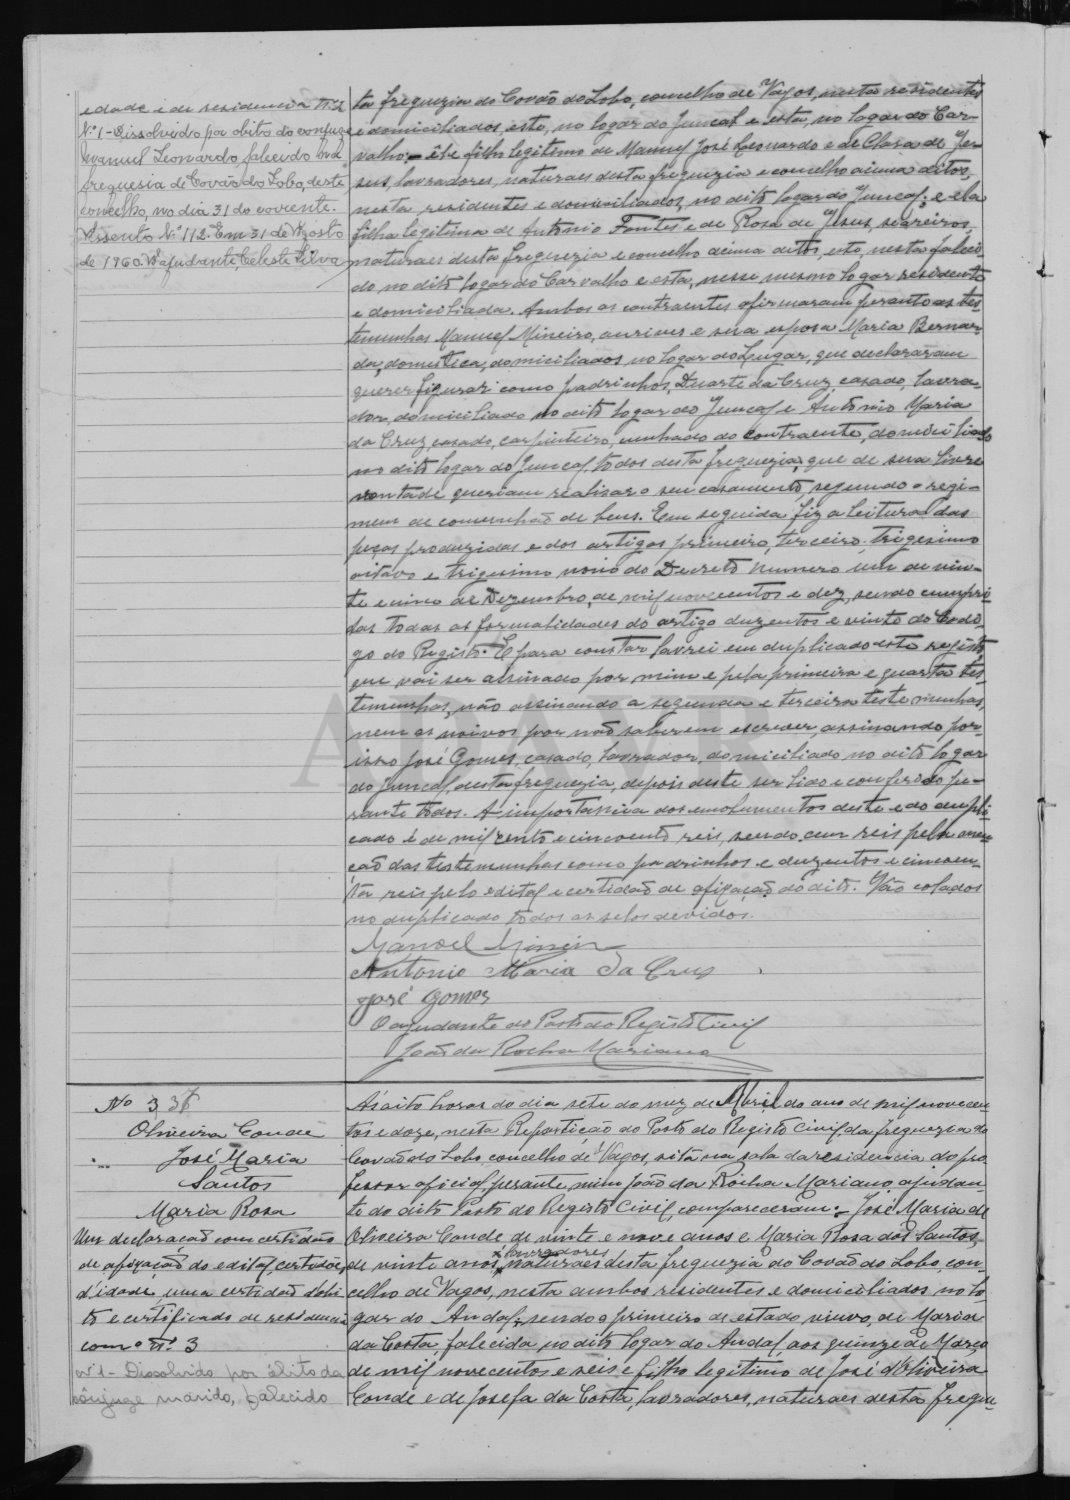 edade e de residencia nº 2
Nº 1 - Dissolvido por obito do conjuge
Manuel Leonardo, falecido na
freguesia de Covão do Lobo, deste
concelho, no dia 31 do corrente.
Assento Nº 112. Em 31 de Agosto
de 1960. A ajudante Celeste Silva
ta freguezia do Covão do Lobo, concelho de Vagos, nesta residentes
e domiciliados, este, no logar do Juncal e esta, no logar do Car-
valho; - êle filho legitimo de Manuel José Leonardo e de Clara de Je-
sus, lavradores, naturaes desta freguezia e concelho acima ditos,
nesta residentes e domiciliados, no dito logar do Juncal; e ela
filha legitima de Antonio Fontes e de Rosa de Jesus, seareiros,
naturaes desta freguezia e concelho acima ditos, este, nesta faleci-
do no dito logar do Carvalho e esta, nesse mesmo logar residente
e domiciliada. Ambos os contraentes afirmaram perante as tes-
temunhas Manuel Mineiro, ourives e sua esposa Maria Bernar-
da, domestica, domiciliados no logar do , que declararam
querer figurar como padrinhos, Duarte da Cruz, casado, lavra-
dor, domiciliado no dito logar do Juncal e Antonio Maria
da Cruz, casado, carpinteiro, cunhado do contraente, domiciliado
no dito logar do Juncal, todos desta freguezia, que de sua livre
vontade queriam realisar o seu casamento, segundo o regi-
men de comunhão de bens. Em seguida fiz a leitura das
peças produzidas e dos artigos primeiro, terceiro, trigesimo
oitavo e trigesimo nono do Decreto numero um de vin-
te e cinco de Dezembro, de mil novecentos e dez, sendo cumpri-
das todas as formalidades do artigo duzentos e vinte do Codi-
go do Registo. E para constar lavrei em duplicado este registo,
que vai ser assinado por mim e pela primeira e quarta tes-
temunhas, não assinando a segunda e terceira testemunhas,
nem os noivos por não saberem escrever, assinando por-
isso José Gomes, casado, lavrador, domiciliado no dito logar
do Juncal, desta freguezia, depois deste ser lido e conferido pe-
rante todos. A importancia dos emolumentos deste e do dupli-
cado é de mil cento e cincoenta reis, sendo cem reis pela men-
ção das testemunhas como padrinhos e duzentos e cincoen-
ta reis pelo edital e certidão de afixação do dito. Vão colados
no duplicado todos os selos devidos.
Manoel Mineiro
Antonio Maria da Cruz
José Gomes
O ajudante do Posto do Registo Civil
João da Rocha Mariano
ADAVR
Nº 3
Oliveira Conde
José Maria
Santos
Maria Rosa
Uma declaração com certidão
de afixação do edital, certidões
d'idade, uma certidão d'obi-
to e certificado de residencia
com o nº 3
nº 1 - Dissolvido por óbito do
cônjuge marido, falecido
Ás oito horas do dia sete do mez de Abril do ano de mil novecen-
tos e doze, nesta Repartição do Posto do Registo Civil, da freguezia do
Covão do Lobo, concelho de Vagos, sita na sala da residencia do pro-
fessor oficial, perante mim João da Rocha Mariano, ajudan-
te do dito Posto do Registo Civil, compareceram: - José Maria de
Oliveira Conde de vinte e nove anos e Maria Rosa dos Santos,
lavradores
de vinte anos, naturaes desta freguezia do Covão do Lobo, con-
celho de Vagos, nesta ambos residentes e domiciliados no lo-
gar do Andal, sendo o primeiro de estado viuvo, de Maria
da Costa, falecida no dito logar do Andal, aos quinze de Março
de mil novecentos e seis, e filho legitimo de José d'Oliveira
Conde e de Josefa da Costa, lavradores, naturaes desta fregue-